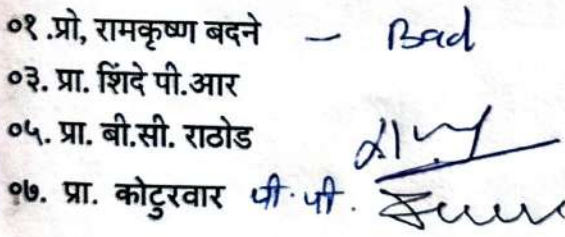 ०१.प्रो, रामकृष्ण बदने – Bad
०३. प्रा. शिंदे पी.आर
०५. प्रा. बी.सी. राठोड
०७. प्रा. कोटुरवार पी.पी.